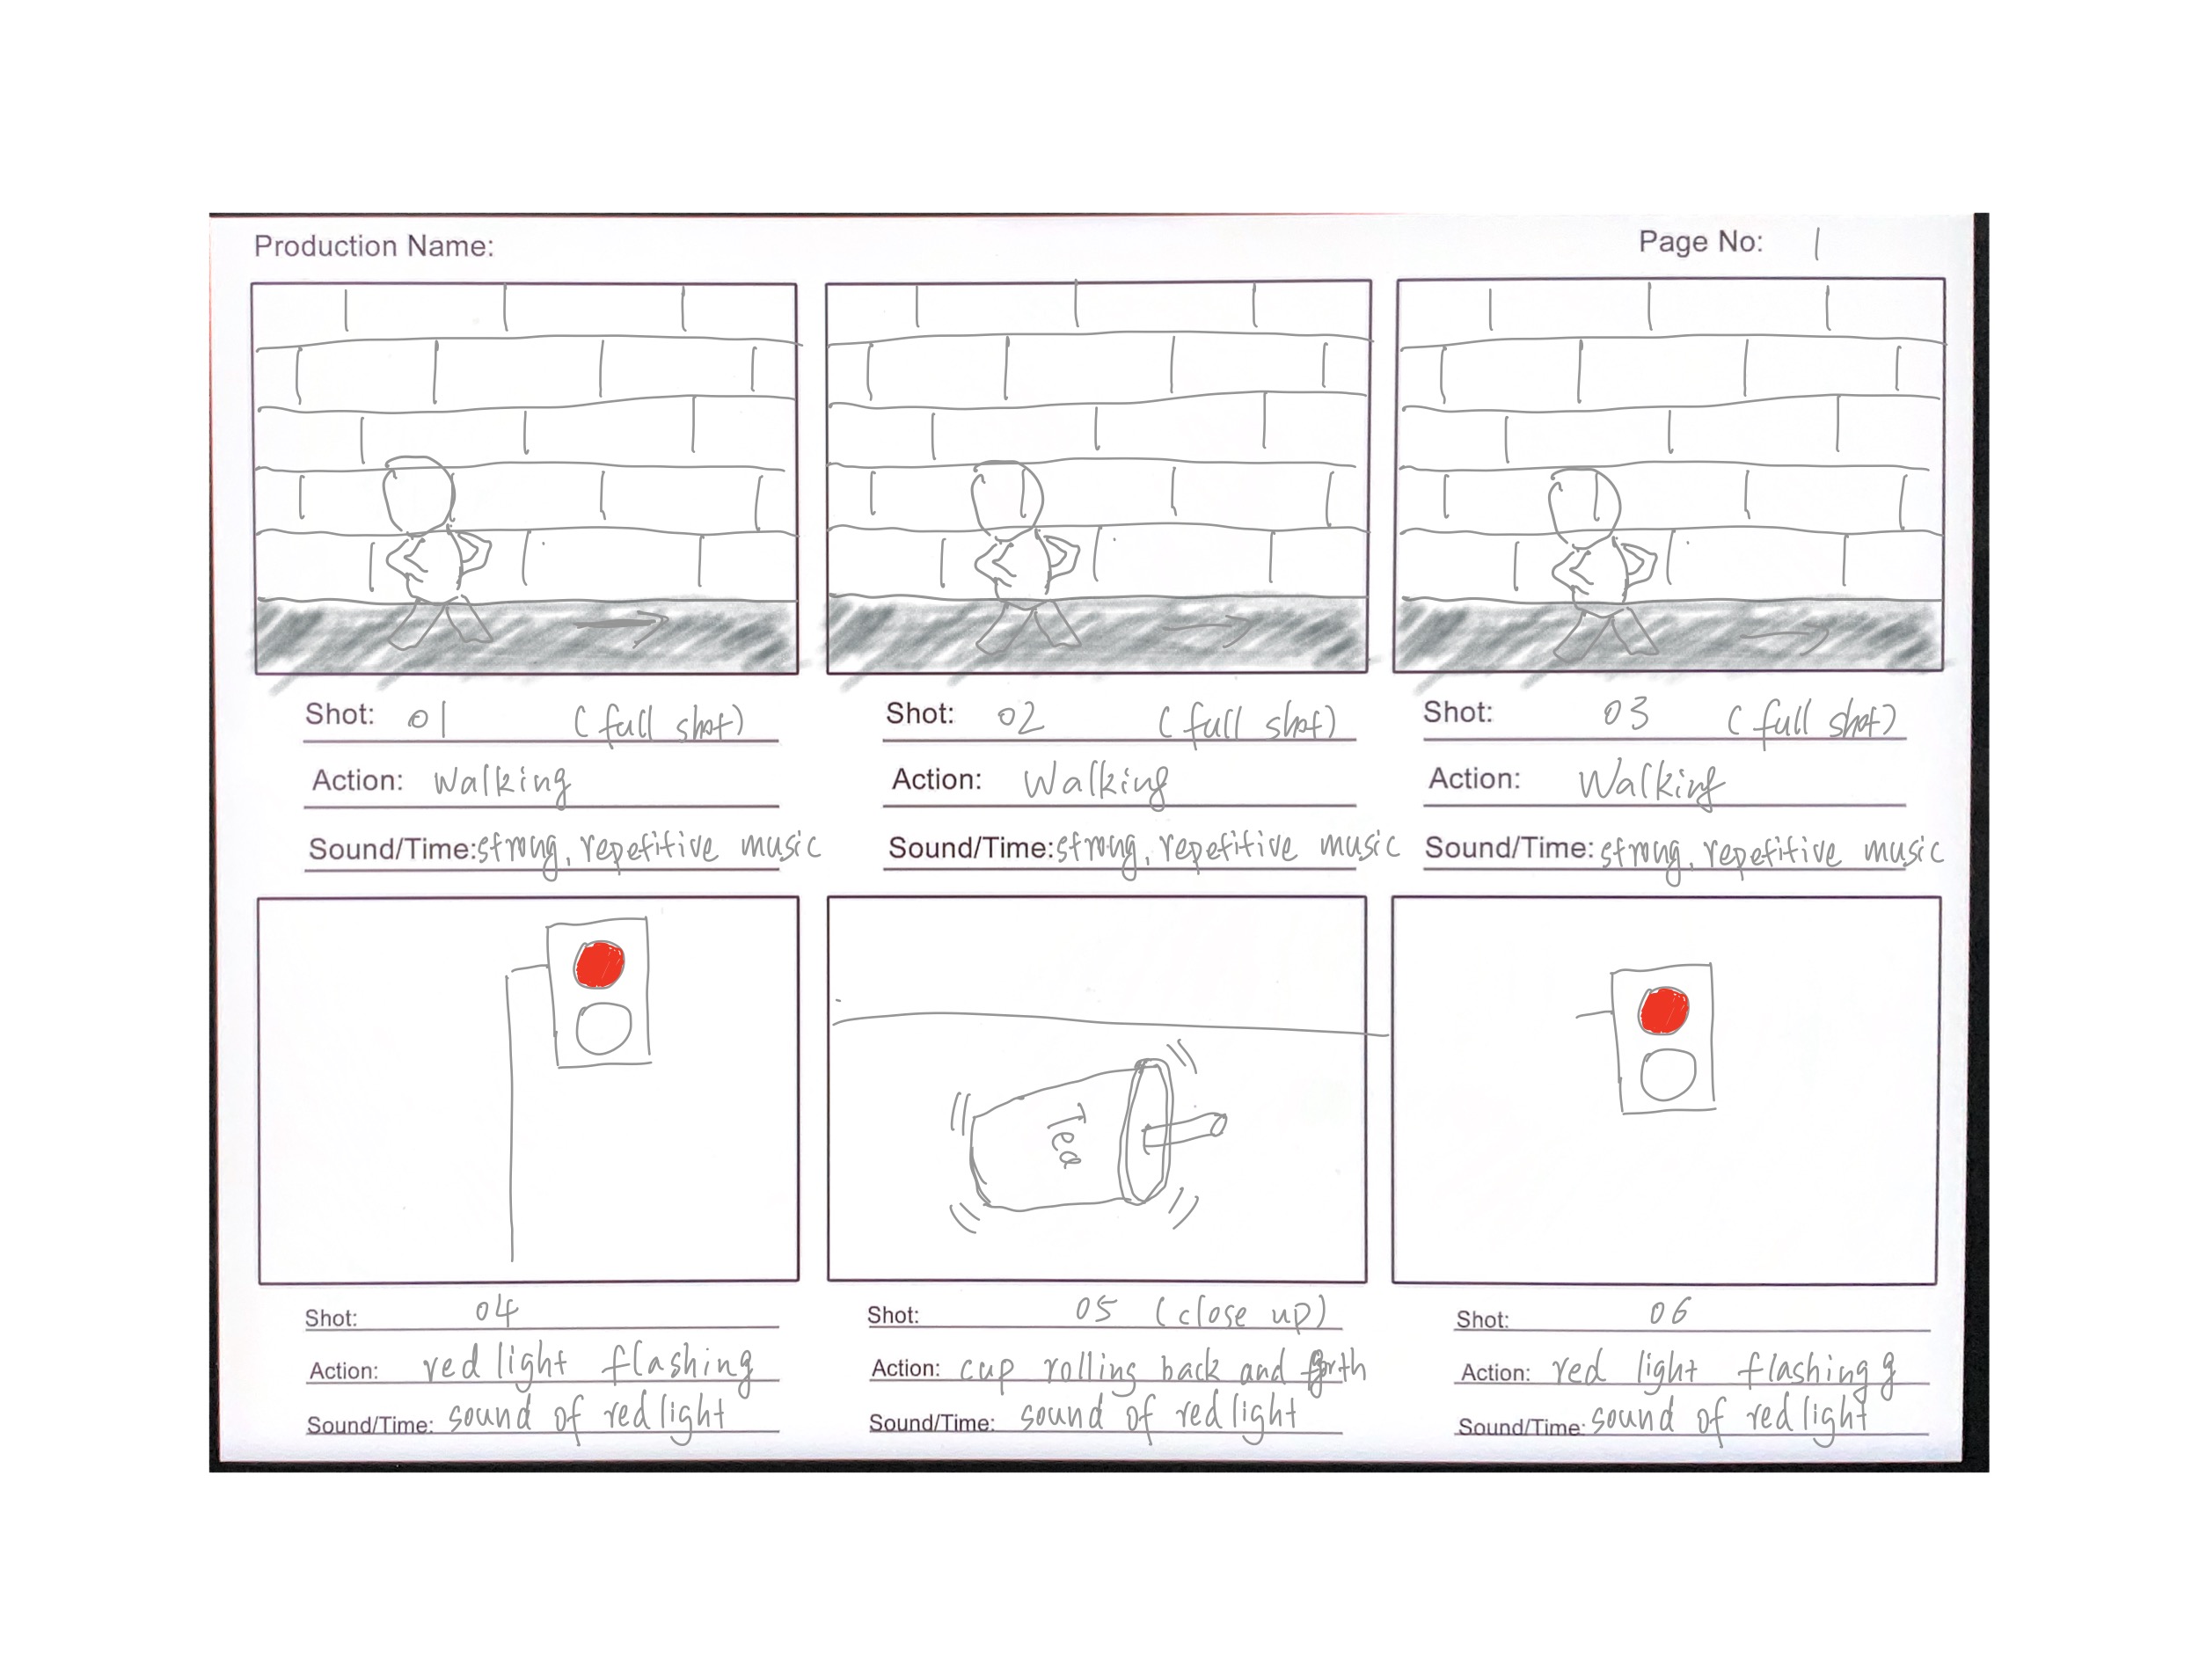 Production Name:
Page No: 1
Shot: 01 (full shot)
Action: Walking
Sound/Time: strong, repetitive music
Shot: 02 (full shot)
Action: Walking
Sound/Time: strong, repetitive music
Shot: 03 (full shot)
Action: Walking
Sound/Time: strong, repetitive music
Tea
Shot: 04
Action: red light flashing
Sound/Time: sound of red light
Shot: 05 (close up)
Action: cup rolling back and forth
Sound/Time: sound of red light
Shot: 06
Action: red light flashing g
Sound/Time: sound of red light